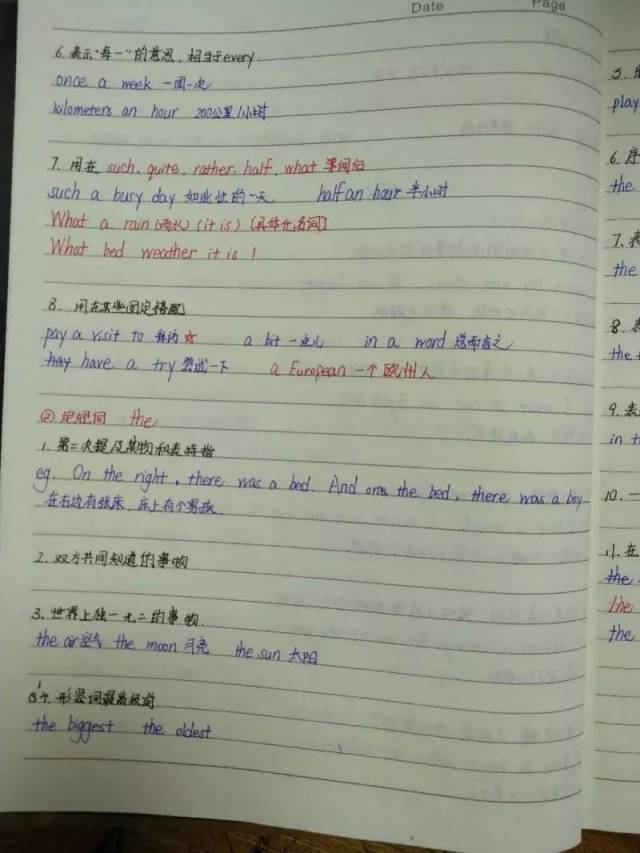 Date Page
6. 表示"每一"的意思, 相当于every.
once a week 一周一次
kilometers an hour 200公里/小时
7. 用在 such, quite, rather, half, what 等词后
such a busy day 如此忙的一天 half an hour 半小时
What a rain (雨水) (it is) (具体化名词)
What bed weather it is !
8. 用在某些固定搭配
pay a visit to 拜访 ☆ a bit 一点儿 in a word 总而言之
hay have a try 尝试一下 a European 一个欧洲人
② 定冠词 the
1. 第二次提及某物和表特指
eg. On the right, there was a bed. And one the bed, there was a boy
在右边有张床, 床上有个男孩.
2. 双方共同知道的事物
3. 世界上独一无二的事物.
the air 空气 the moon 月亮 the sun 太阳
4. 形容词最高级前
the biggest the oldest
5.
play
6. 序
the
7. 表
the
8. 表
the
9. 表
in t
10. 一
11. 在
the
the
the